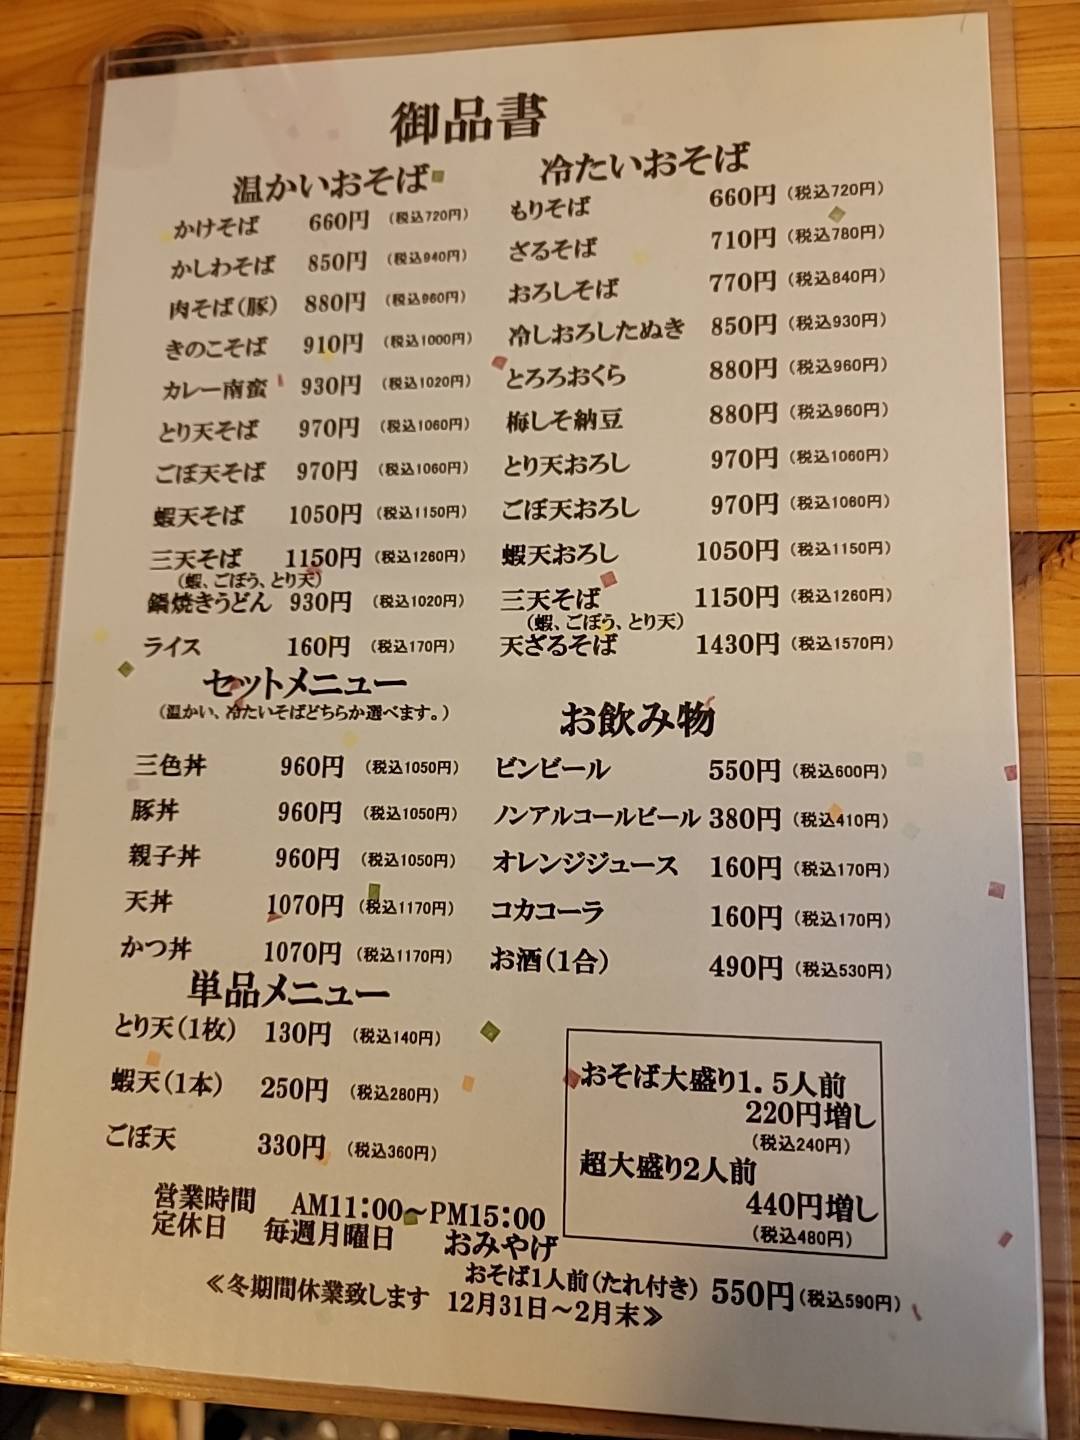 御品書
温かいおそば
かけそば 660円 (税込720円)
かしわそば 850円 (税込940円)
肉そば(豚) 880円 (税込960円)
きのこそば 910円 (税込1000円)
カレー南蛮 930円 (税込1020円)
とり天そば 970円 (税込1060円)
ごぼ天そば 970円 (税込1060円)
蝦天そば 1050円 (税込1150円)
三天そば 1150円 (税込1260円)
(蝦、ごぼう、とり天)
鍋焼きうどん 930円 (税込1020円)
ライス 160円 (税込170円)
冷たいおそば
もりそば 660円 (税込720円)
ざるそば 710円 (税込780円)
おろしそば 770円 (税込840円)
冷しおろしたぬき 850円 (税込930円)
とろろおくら 880円 (税込960円)
梅しそ納豆 880円 (税込960円)
とり天おろし 970円 (税込1060円)
ごぼ天おろし 970円 (税込1060円)
蝦天おろし 1050円 (税込1150円)
三天そば 1150円 (税込1260円)
(蝦、ごぼう、とり天)
天ざるそば 1430円 (税込1570円)
セットメニュー
(温かい、冷たいそばどちらか選べます。)
三色丼 960円 (税込1050円)
豚丼 960円 (税込1050円)
親子丼 960円 (税込1050円)
天丼 1070円 (税込1170円)
かつ丼 1070円 (税込1170円)
お飲み物
ビンビール 550円 (税込600円)
ノンアルコールビール 380円 (税込410円)
オレンジジュース 160円 (税込170円)
コカコーラ 160円 (税込170円)
お酒(1合) 490円 (税込530円)
単品メニュー
とり天(1枚) 130円 (税込140円)
蝦天(1本) 250円 (税込280円)
ごぼ天 330円 (税込360円)
おそば大盛り1.5人前
220円増し
(税込240円)
超大盛り2人前
440円増し
(税込480円)
営業時間 AM11:00～PM15:00
定休日 毎週月曜日
おみやげ
おそば1人前(たれ付き) 550円(税込590円)
≪冬期間休業致します 12月31日～2月末≫